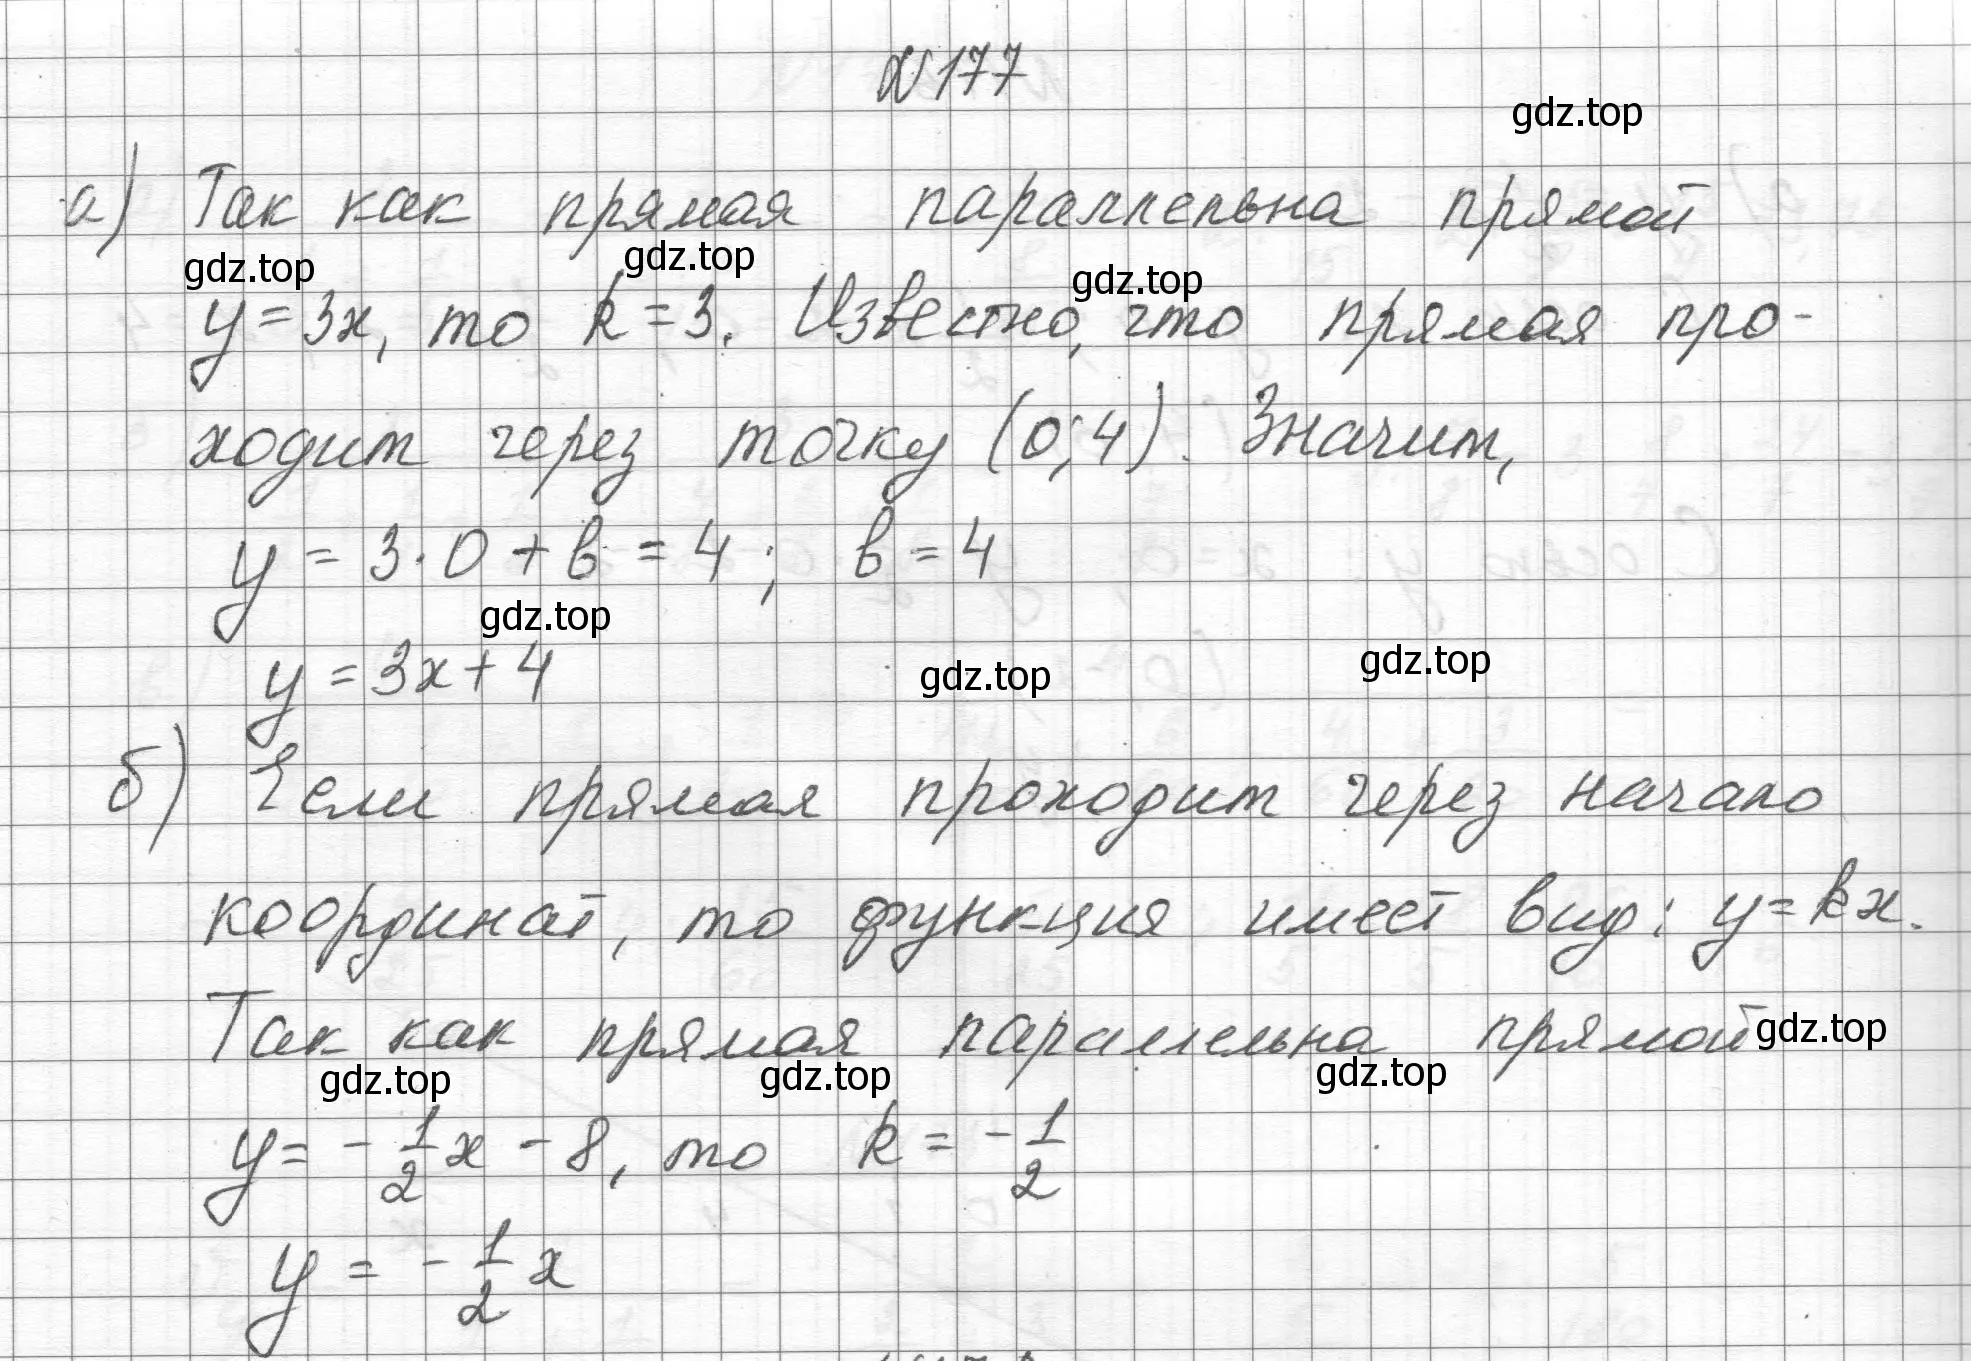 №177
gdz.top
а) Так как прямая параллельна прямой
gdz.top gdz.top gdz.top
y = 3x, то k = 3. Известно, что прямая про-
ходит через точку (0; 4). Значит,
y = 3 · 0 + b = 4; b = 4
gdz.top
y = 3x + 4
gdz.top gdz.top
б) Если прямая проходит через начало
координат, то функция имеет вид: y = kx.
Так как прямая параллельна прямой
gdz.top
gdz.top gdz.top gdz.top
y = -1/2 x - 8, то k = -1/2
y = -1/2 x